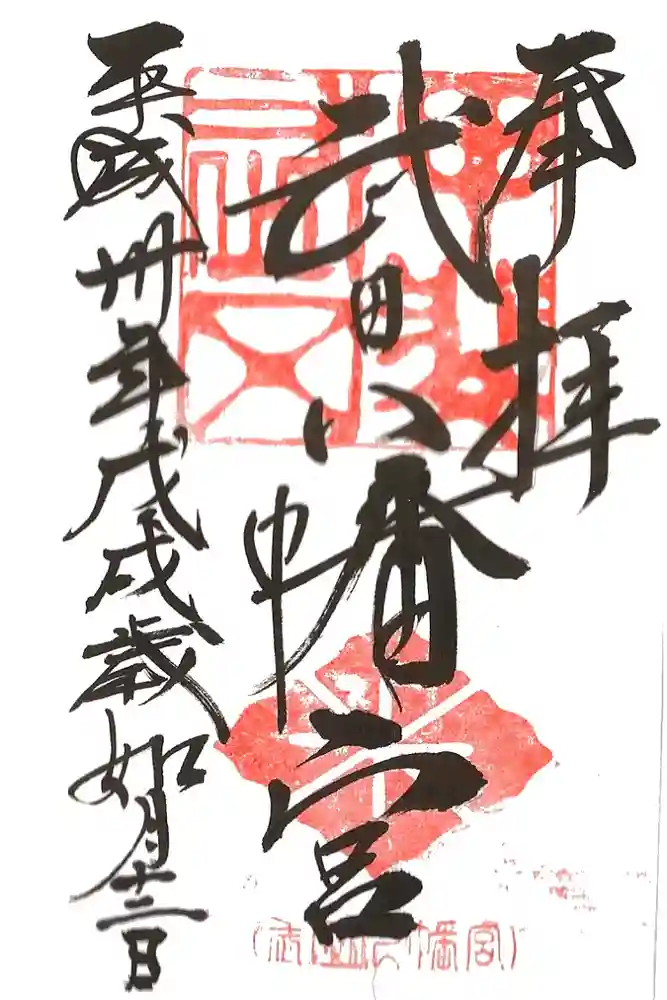 奉拝
武田八幡宮
平成卅年戊戌歳如月十二日
武田八幡宮